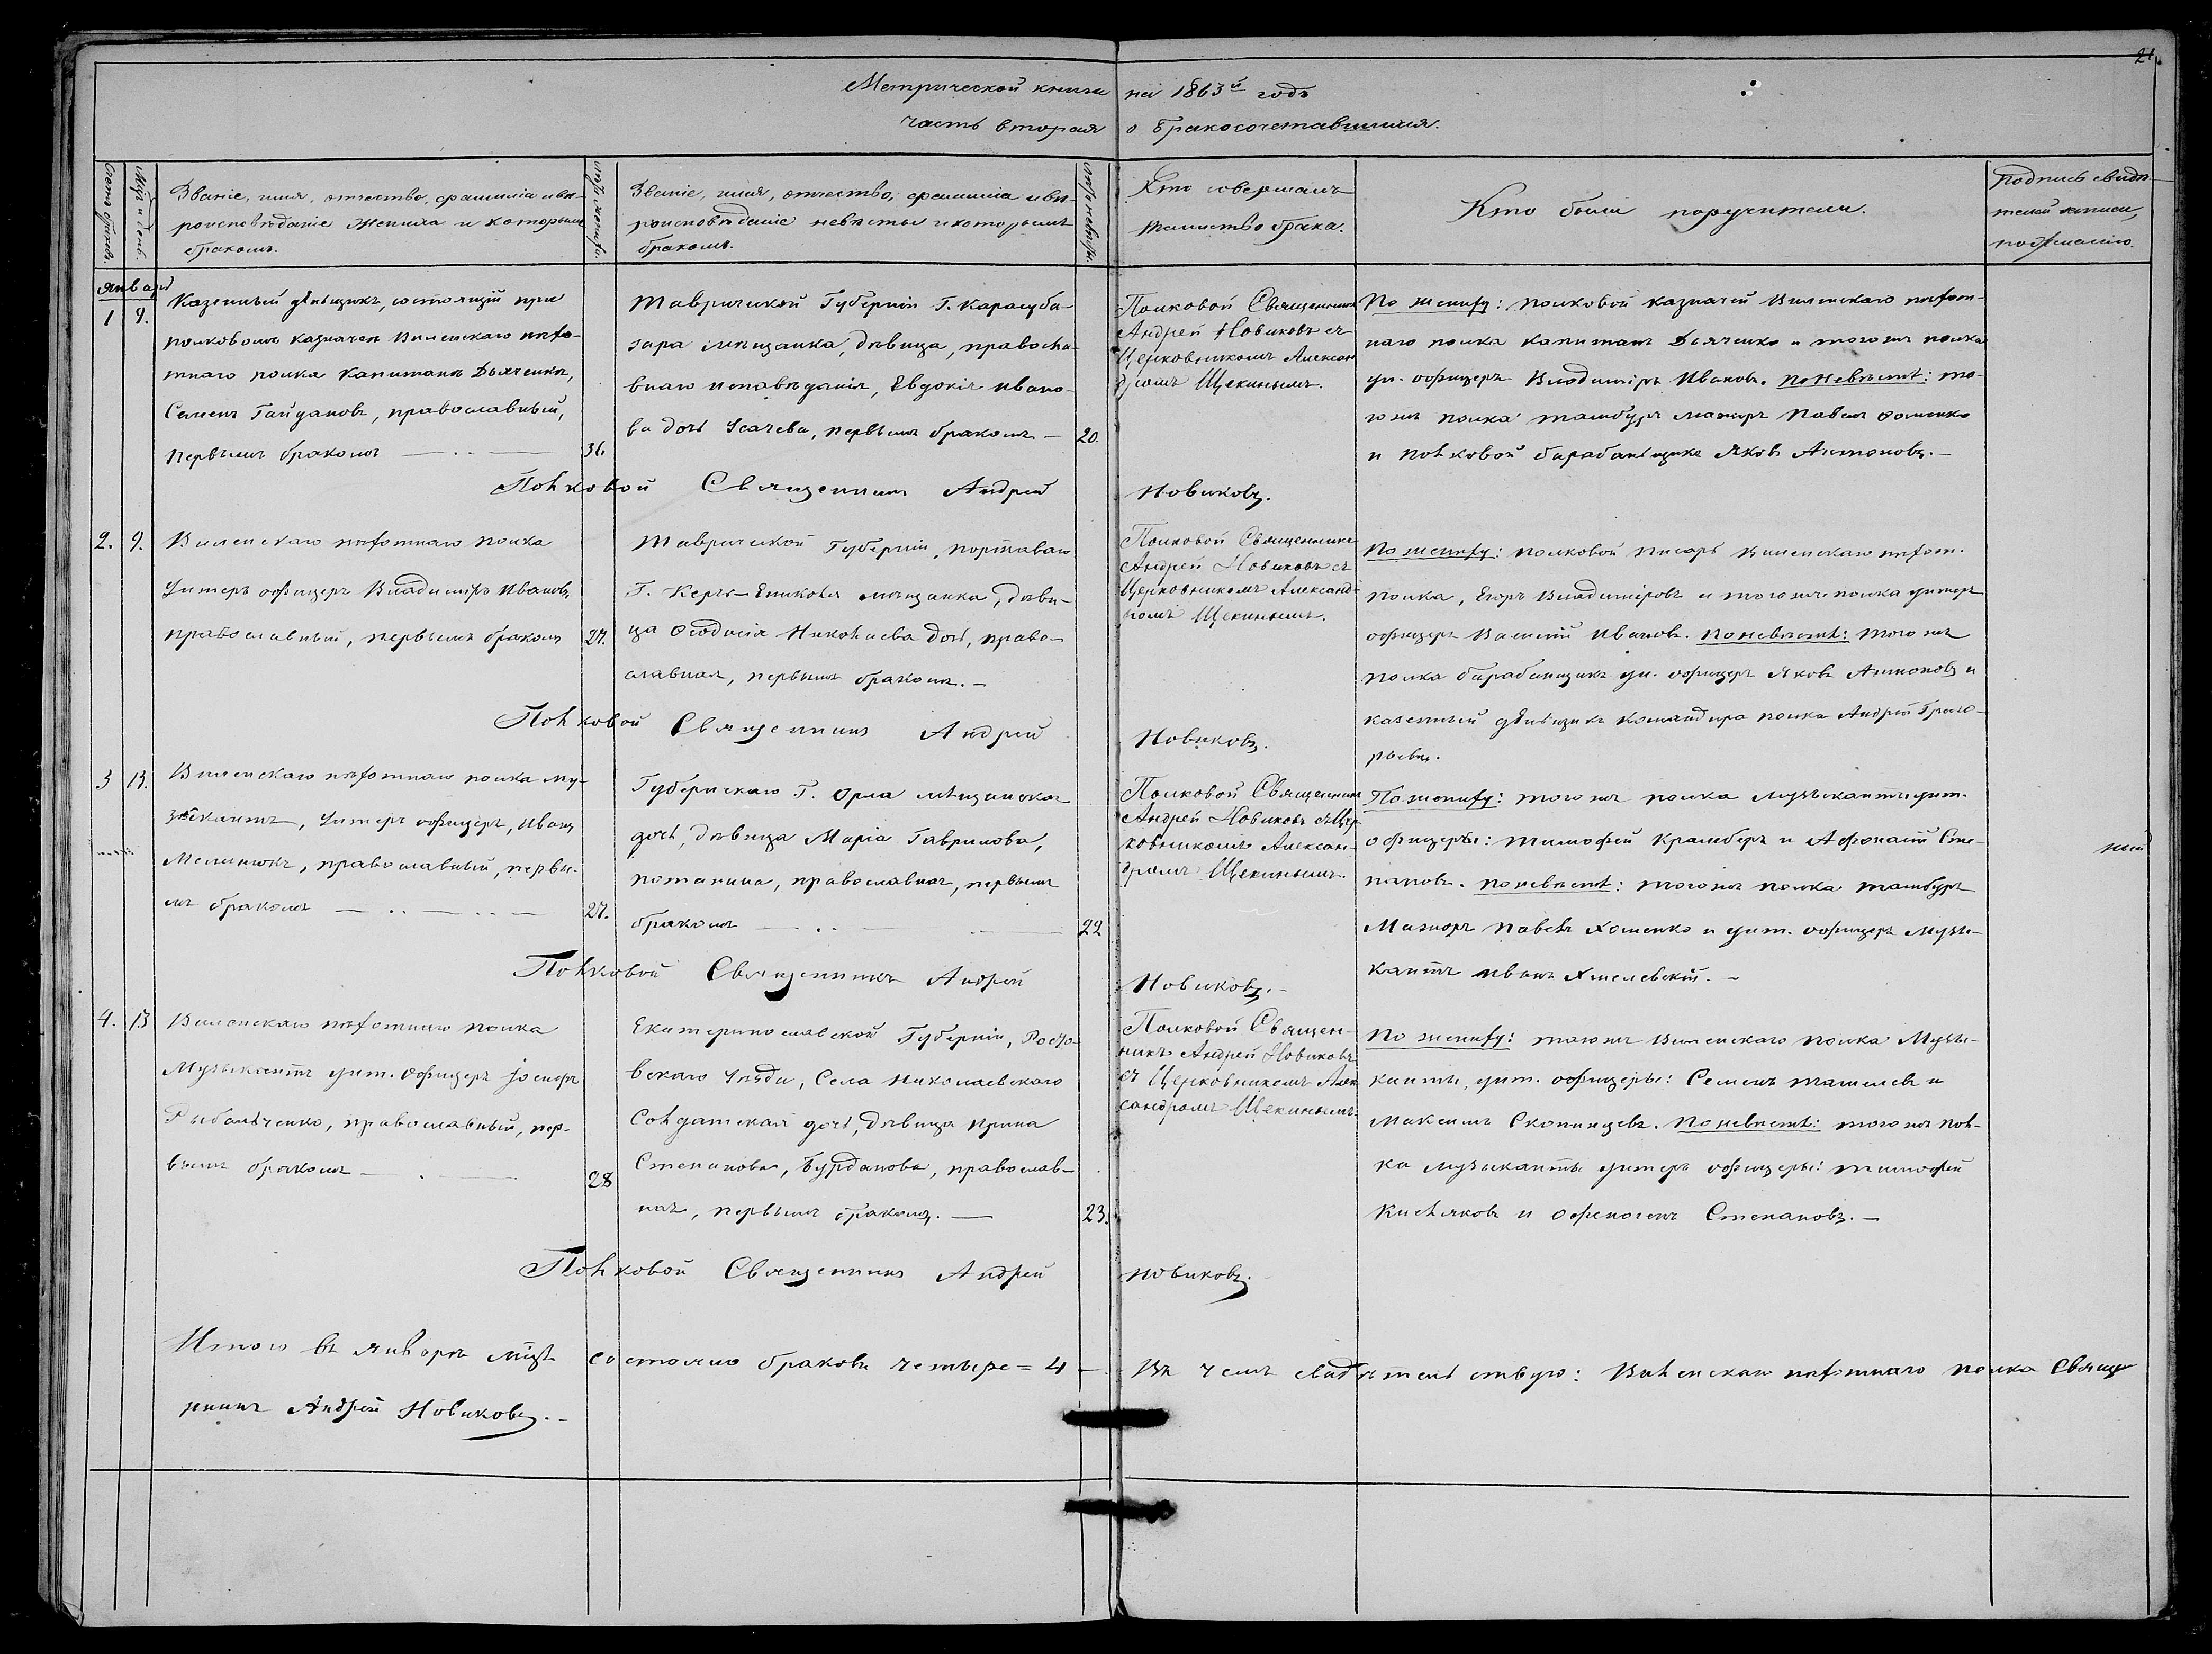 21.
Метрической книги на 1863й годъ
часть вторая о бракосочетавшихся.
Счетъ браковъ.
Мѣс. и день.
Званіе, имя, отчество, фамилія и вѣ-
роисповѣданіе Жениха и которымъ
бракомъ.
Званіе, имя, отчество, фамилія и вѣ-
роисповѣданіе невѣсты и которымъ
бракомъ.
Кто совершалъ
таинство брака.
Кто были поручители.
Подпись свидѣ-
телей записи,
по желанію.
Январь
1 9.
Казенный деньщикъ, состоящій при
полковомъ казначеѣ Виленскаго пѣхо-
тнаго полка Капитанѣ Дьяченкѣ,
Семенъ Гайдановъ, православный,
первымъ бракомъ — .. —
31.
Таврической Губерніи Г. Карасуба-
зара мѣщанка, дѣвица, правосла-
внаго исповѣданія, Евдокія Ивано-
ва дочь Усачева, первымъ бракомъ —
20.
Полковой Священникъ
Андрей Новиковъ съ
Церковникомъ Алексан
дромъ Щекинымъ.
По жениху: полковой казначей Виленскаго пѣхот-
наго полка Капитанъ Дьяченко и того жъ полка
ун. офицеръ Владиміръ Ивановъ. По невѣстѣ: то-
го жъ полка тамбуръ мажоръ Павелъ Фоменко
и полковой барабанщикъ Яковъ Антоновъ. —
Полковой Священникъ Андрей Новиковъ.
2. 9.
Виленскаго пѣхотнаго полка
Унтеръ офицеръ Владиміръ Ивановъ,
православный, первымъ бракомъ
27.
Таврической Губерніи, портоваго
Г. Керчь-Еникаля мѣщанка, дѣви-
ца Феодосія Николаева дочь, право-
славная, первымъ бракомъ. —
Полковой Священникъ
Андрей Новиковъ съ
Церковникомъ Александ-
ромъ Щекинымъ.
По жениху: полковой писарь Виленскаго пѣхот.
полка, Егоръ Владиміровъ и того жъ полка унтеръ
офицеръ Василій Ивановъ. По невѣстѣ: того жъ
полка барабанщикъ ун. офицеръ Яковъ Антоновъ и
казенный деньщикъ Командира полка Андрей Григо-
рьевъ.
Полковой Священникъ Андрей Новиковъ.
3 13.
Виленскаго пѣхотнаго полка му-
зыкантъ, Унтеръ офицеръ, Иванъ
Мельникъ, православный, первы-
мъ бракомъ — .. — .. —
27.
Губернскаго Г. Орла мѣщанская
дочь, дѣвица Марія Гаврилова,
Потанина, православная, первымъ
бракомъ — .. —
22
Полковой Священникъ
Андрей Новиковъ съ Цер-
ковникомъ Алексан-
дромъ Щекинымъ.
По жениху: того жъ полка музыканты унт.
офицеры: Тимофей Крамберъ и Афонасій Сте-
пановъ. По невѣстѣ: того жъ полка тамбуръ
Мажоръ Павелъ Хоменко и унт. офицеръ музы-
кантъ Иванъ Хмелевскій. —
Полковой Священникъ Андрей Новиковъ. —
4. 13
Виленскаго пѣхотнаго полка
Музыкантъ унт. Офицеръ Іосифъ
Рыбальченко, православный, пер-
вымъ бракомъ — . —
28
Екатеринославской Губерніи, Росто-
вскаго Уѣзда, Села Николаевскаго
Солдатская дочь, Дѣвица Ирина
Степанова, Бурданова, православ-
ная, первымъ бракомъ. —
23.
Полковой Священ-
никъ Андрей Новиковъ
съ Церковникомъ Алек
сандромъ Щекинымъ.
По жениху: того жъ Виленскаго полка Музы-
канты, унт. офицеры: Семенъ и
Максимъ Скопинцевъ. По невѣстѣ: того жъ пол-
ка музыканты унтеръ офицеры: Тимофей
Кисляковъ и Степановъ. —
Полковой Священникъ Андрей Новиковъ.
Итого въ Январѣ мцѣ состояло браковъ четыре = 4 — Въ чемъ свидѣтельствую: Виленскаго пѣхотнаго полка Свяще
нникъ Андрей Новиковъ. —